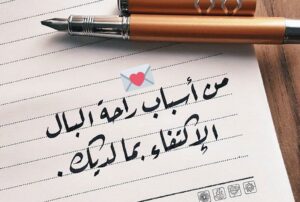 من أسباب راحة البال
الإكتفاء بما لديك.